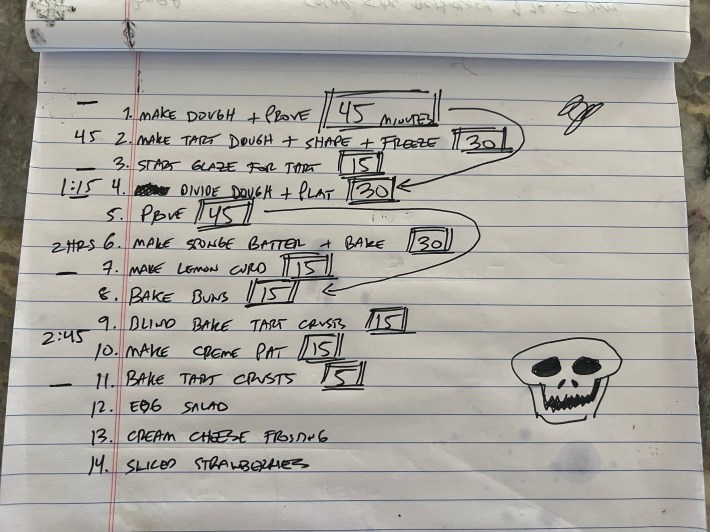 1. MAKE DOUGH + PROVE 45 MINUTES
45 2. MAKE TART DOUGH + SHAPE + FREEZE 30
3. START GLAZE FOR TART 15
1:15 4. DIVIDE DOUGH + PLAT 30
5. PROVE 45
2 HRS 6. MAKE SPONGE BATTER + BAKE 30
7. MAKE LEMON CURD 15
8. BAKE BUNS 15
9. BLIND BAKE TART CRUSTS 15
2:45
10. MAKE CREME PAT 15
11. BAKE TART CRUSTS 5
12. EGG SALAD
13. CREAM CHEESE FROSTING
14. SLICED STRAWBERRIES